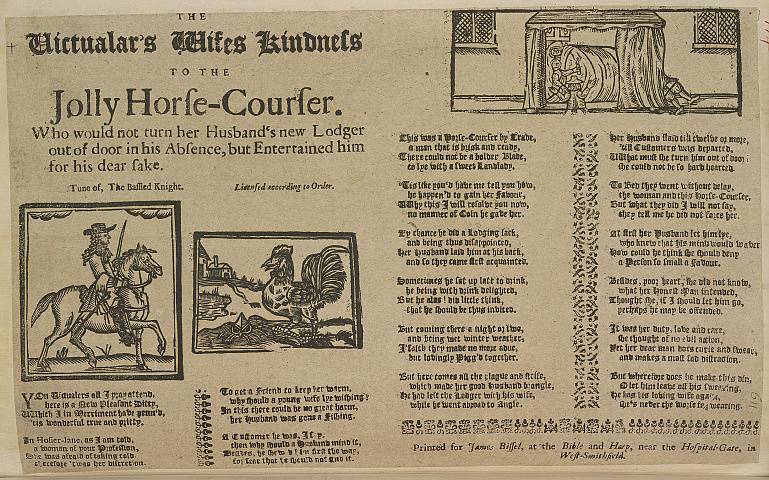 THE
Victualar's Wifes Kindness
TO THE
Jolly Horse-Courser.
Who would not turn her Husband's new Lodger
out of door in his Absence, but Entertained him
for his dear sake.
Tune of, The Baffled Knight.
Licensed according to Order.
YOu Victualers all I pray attend,
here is a New Pleasant Ditty,
Which I in Merriment have penn'd,
'tis wonderful true and pitty.
In Hosier-lane, as I am told,
a woman of your Profession,
She was afraid of taking cold,
therefore 'twas her discretion.
To get a Friend to keep her warm,
why should a young wife lye wishing?
In this there could be no great harm,
her Husband was gone a Fishing.
A Customer he was,
then why should a Husband mind it,
he show'd her first the way,
for fear that he should not find it.
This was a Horse-Courser by Trade,
a man that is brisk and ready,
There could not be a bolder Blade,
to lye with a sweet Landlady.
'Tis like you'd have me tell you how,
he happen'd to gain her Favour,
Why this I will resolve you now,
no manner of Coin he gave her.
By chance he did a Lodging lack,
and being thus disappointed,
Her Husband laid him at his back,
and so they came first acquainted.
Sometimes he sat up late to drink,
he being with drink delighted,
But he alas! did little think,
that he should be thus invited.
But coming there a night or two,
and being wet winter weather,
I'faith they made no more adue,
but lovingly Pigg'd together.
But here comes all the plague and strife,
which made her good husband brangle,
He had left the Lodger with his wife,
while he went abroad to Angle.
Her Husband staid till twelve or more,
'till Customers was departed,
What must she turn him out of door?
she could not be so hard hearted.
To Bed they went without delay,
the woman and this Horse-Courser,
But what they did I will not say,
they tell me he did not force her.
At first her Husband let him lye,
who knew that his mind would waver
How could he think she should deny
a Person so small a Favour.
Besides, poor heart, she did not know,
what her honest Man intended,
Thought she, if I should let him go,
perhaps he may be offended.
It was her duty, love and care,
she thought of no evil action,
Yet her dear man does curse and swear,
and makes a most sad distraction.
But wherefore does he make this din,
O let him leave all his swearing,
He has his loving wife again,
she's never the worse for wearing.
Printed for James Bissel, at the Bible and Harp, near the Hospital-Gate, in
West-Smithfield.